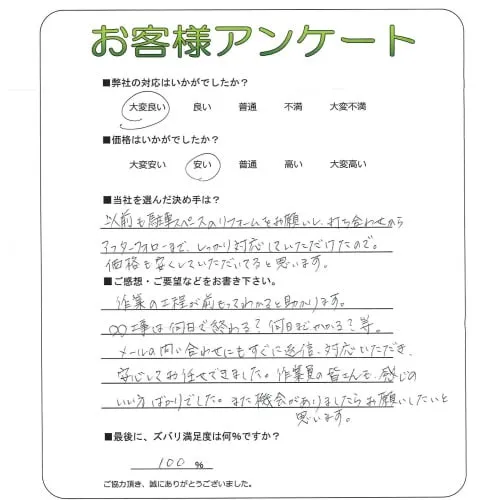 お客様アンケート
■弊社の対応はいかがでしたか？
大変良い 良い 普通 不満 大変不満
■価格はいかがでしたか？
大変安い 安い 普通 高い 大変高い
■当社を選んだ決め手は？
以前も駐車スペースのリフォームをお願いし、打ち合わせから
アフターフォローまで、しっかり対応していただけたので。
価格も安くしていただいてると思います。
■ご感想・ご要望などをお書き下さい。
作業の工程が前もってわかると助かります。
○○工事は何日で終わる？何日までかかる？等。
メールの問い合わせにもすぐに返信、対応いただき、
安心してお任せできました。作業員の皆さんも、感じの
いい方ばかりでした。また機会がありましたらお願いしたいと
思います。
■最後に、ズバリ満足度は何％ですか？
100 %
ご協力頂き、誠にありがとうございました。